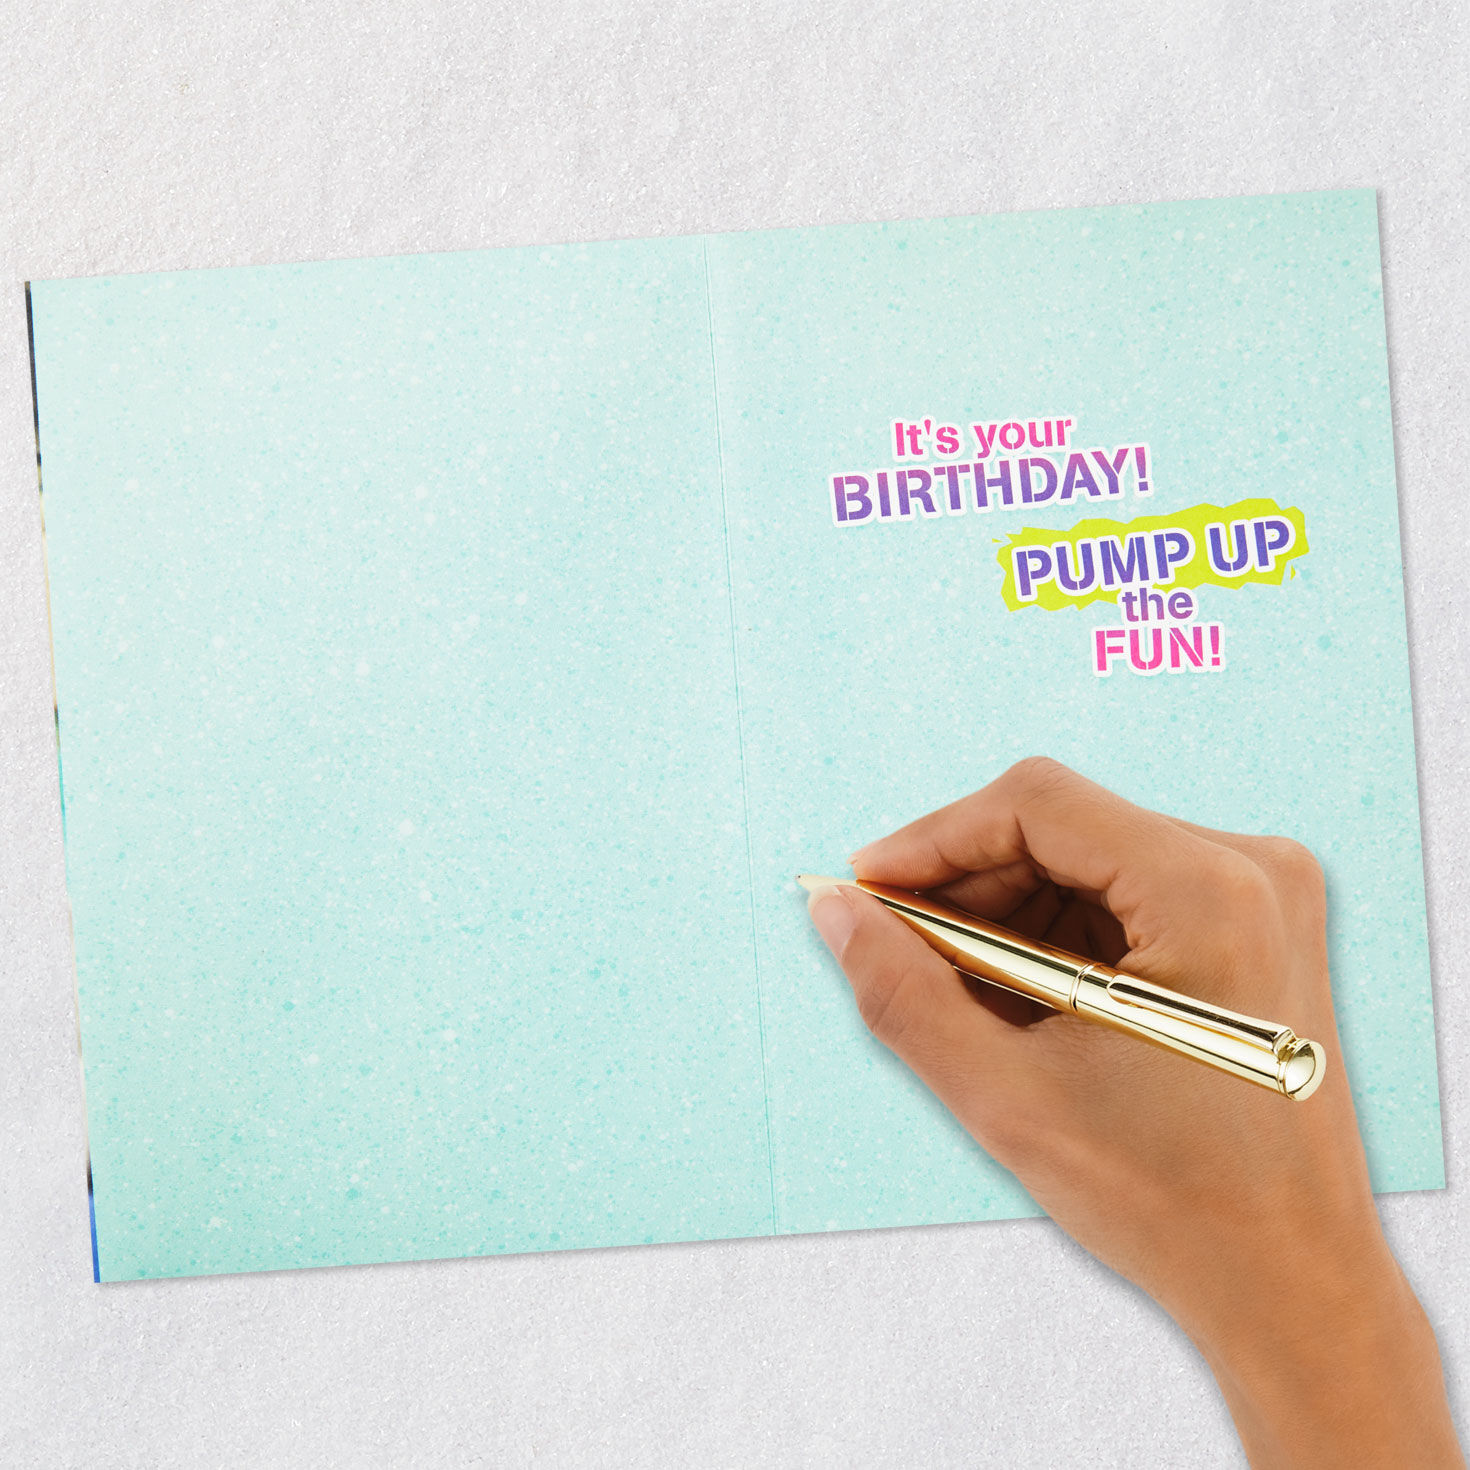 It's your
BIRTHDAY!
PUMP UP
the
FUN!